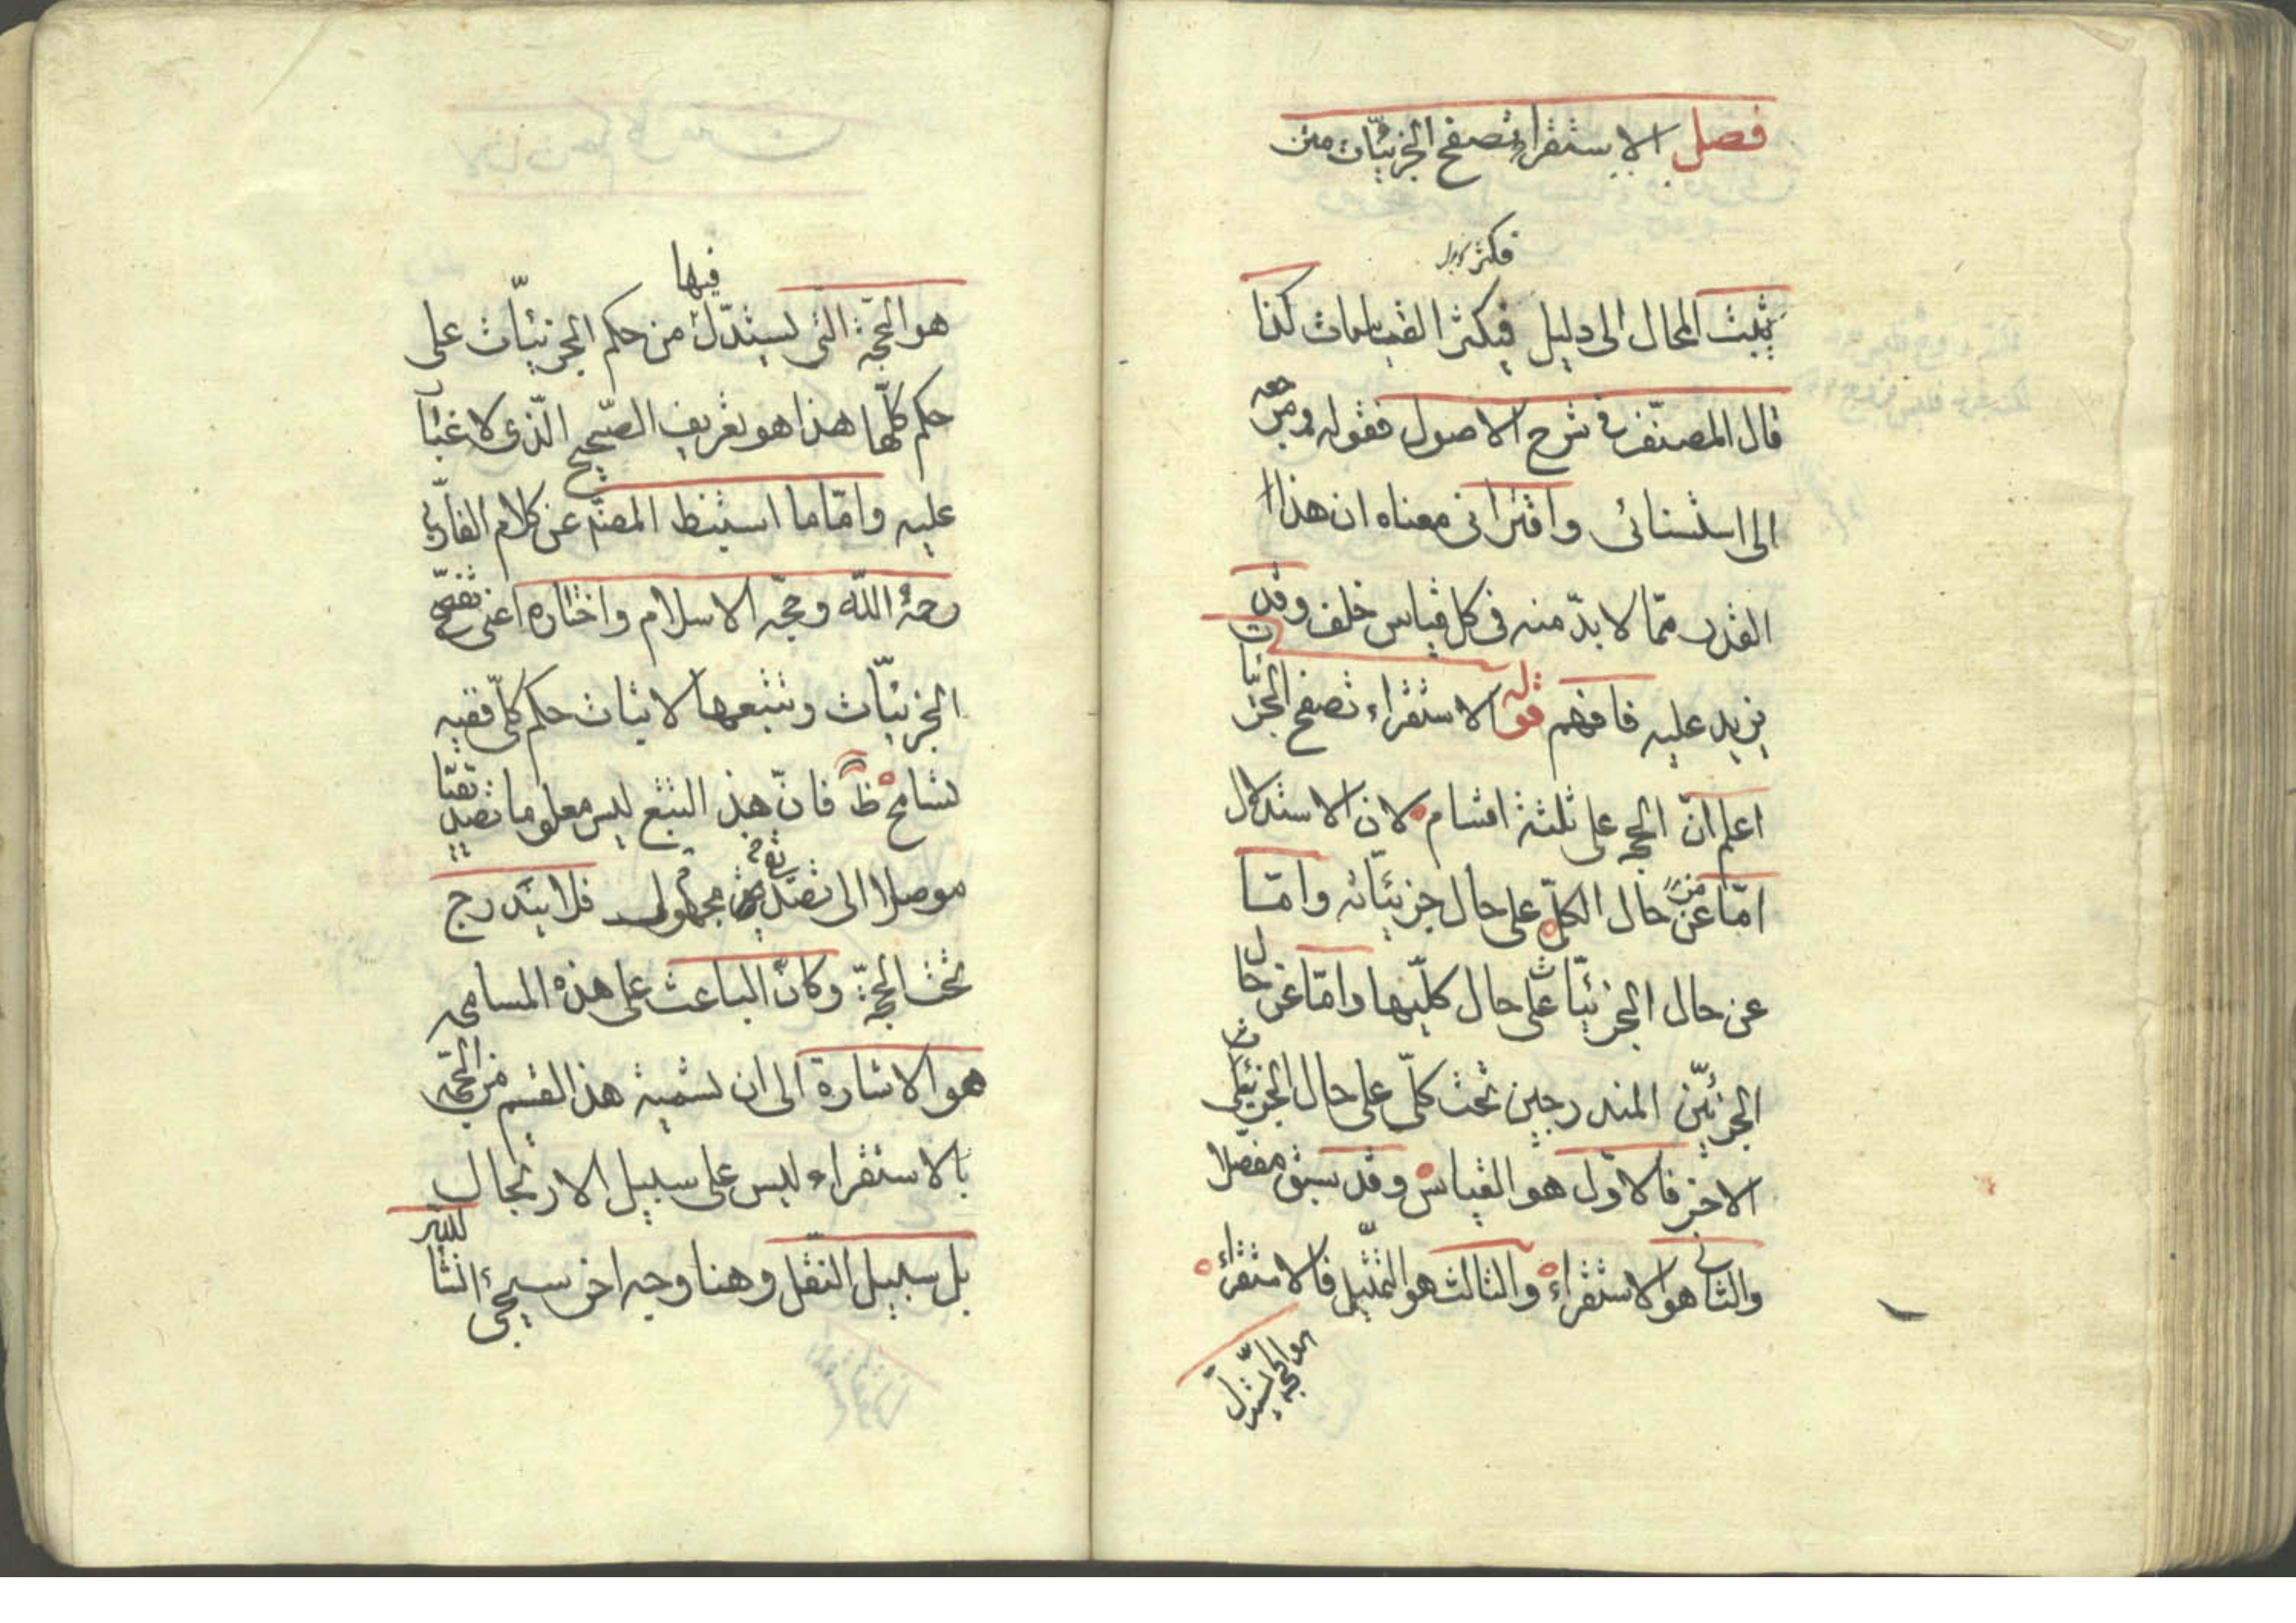 فصل الاستقراء تصفح الجزئيّات متن
فكثر
يثبت المحال الى دليل فيكثر القياسات كذا
قال المصنّف فى شرح الاصول فقوله ومرجعه
الى استثنائى واقترانى معناه ان هذا
القدر ممّا لا بدّ منه فى كل قياس خلف وقد
يزيد عليه فافهم قوله الاستقراء تصفح الجزئيات
اعلم انّ الحجه على ثلثة اقسام لان الاستدلال
امّا عن من حال الكلّى على حال جزئيّاته وامّا
عن حال الجزئيّات على حال كلّيّها وامّا عن حال
الجزئيّن المندرجين تحت كلّى على حال الجزئى
الاخر فالاوّل هو القياس وقد سبق مفصّلا
والثانى هو الاستقراء والثالث هو التمثيل فالاستقراء
هو الحجة يستدلّ
فيها
هو الحجّة التى يستدلّ من حكم الجزئيّات على
حكم كلّها هذا هو تعريف الصّحيح الّذى لا غبار
عليه وامّا ما استنبط المصنّف عن كلام الفارابى
رحمة اللّه وحجّه الاسلام واختاره اعنى تصفّح
الجزئيّات وتتبعها لاثبات حكم كلّى ففيه
تسامح ظ فانّ هذ التتبع ليس معلوما تصديقيا
موصلا الى تصديق مجهول فلا يندرج
تحت الحجّة وكانّ الباعث على هذه المسامحه
هو الاشارة الى ان تسمية هذ القسم من الحجّه
بالاستقراء ليس على سبيل الارتجال
بل سبيل النّقل وهنا وجه اخر سيجئ انشا الله